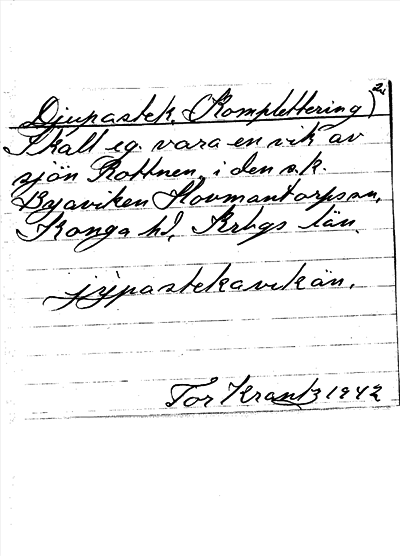 Djupastek. (Komplettering)
Skall eg. vara en vik av
sjön Rottnen, i den s.k.
Byaviken Hovmantorps sn,
Konga hd, Krbgs län.
jỳpastekavikän.
Tor Krantz 1942